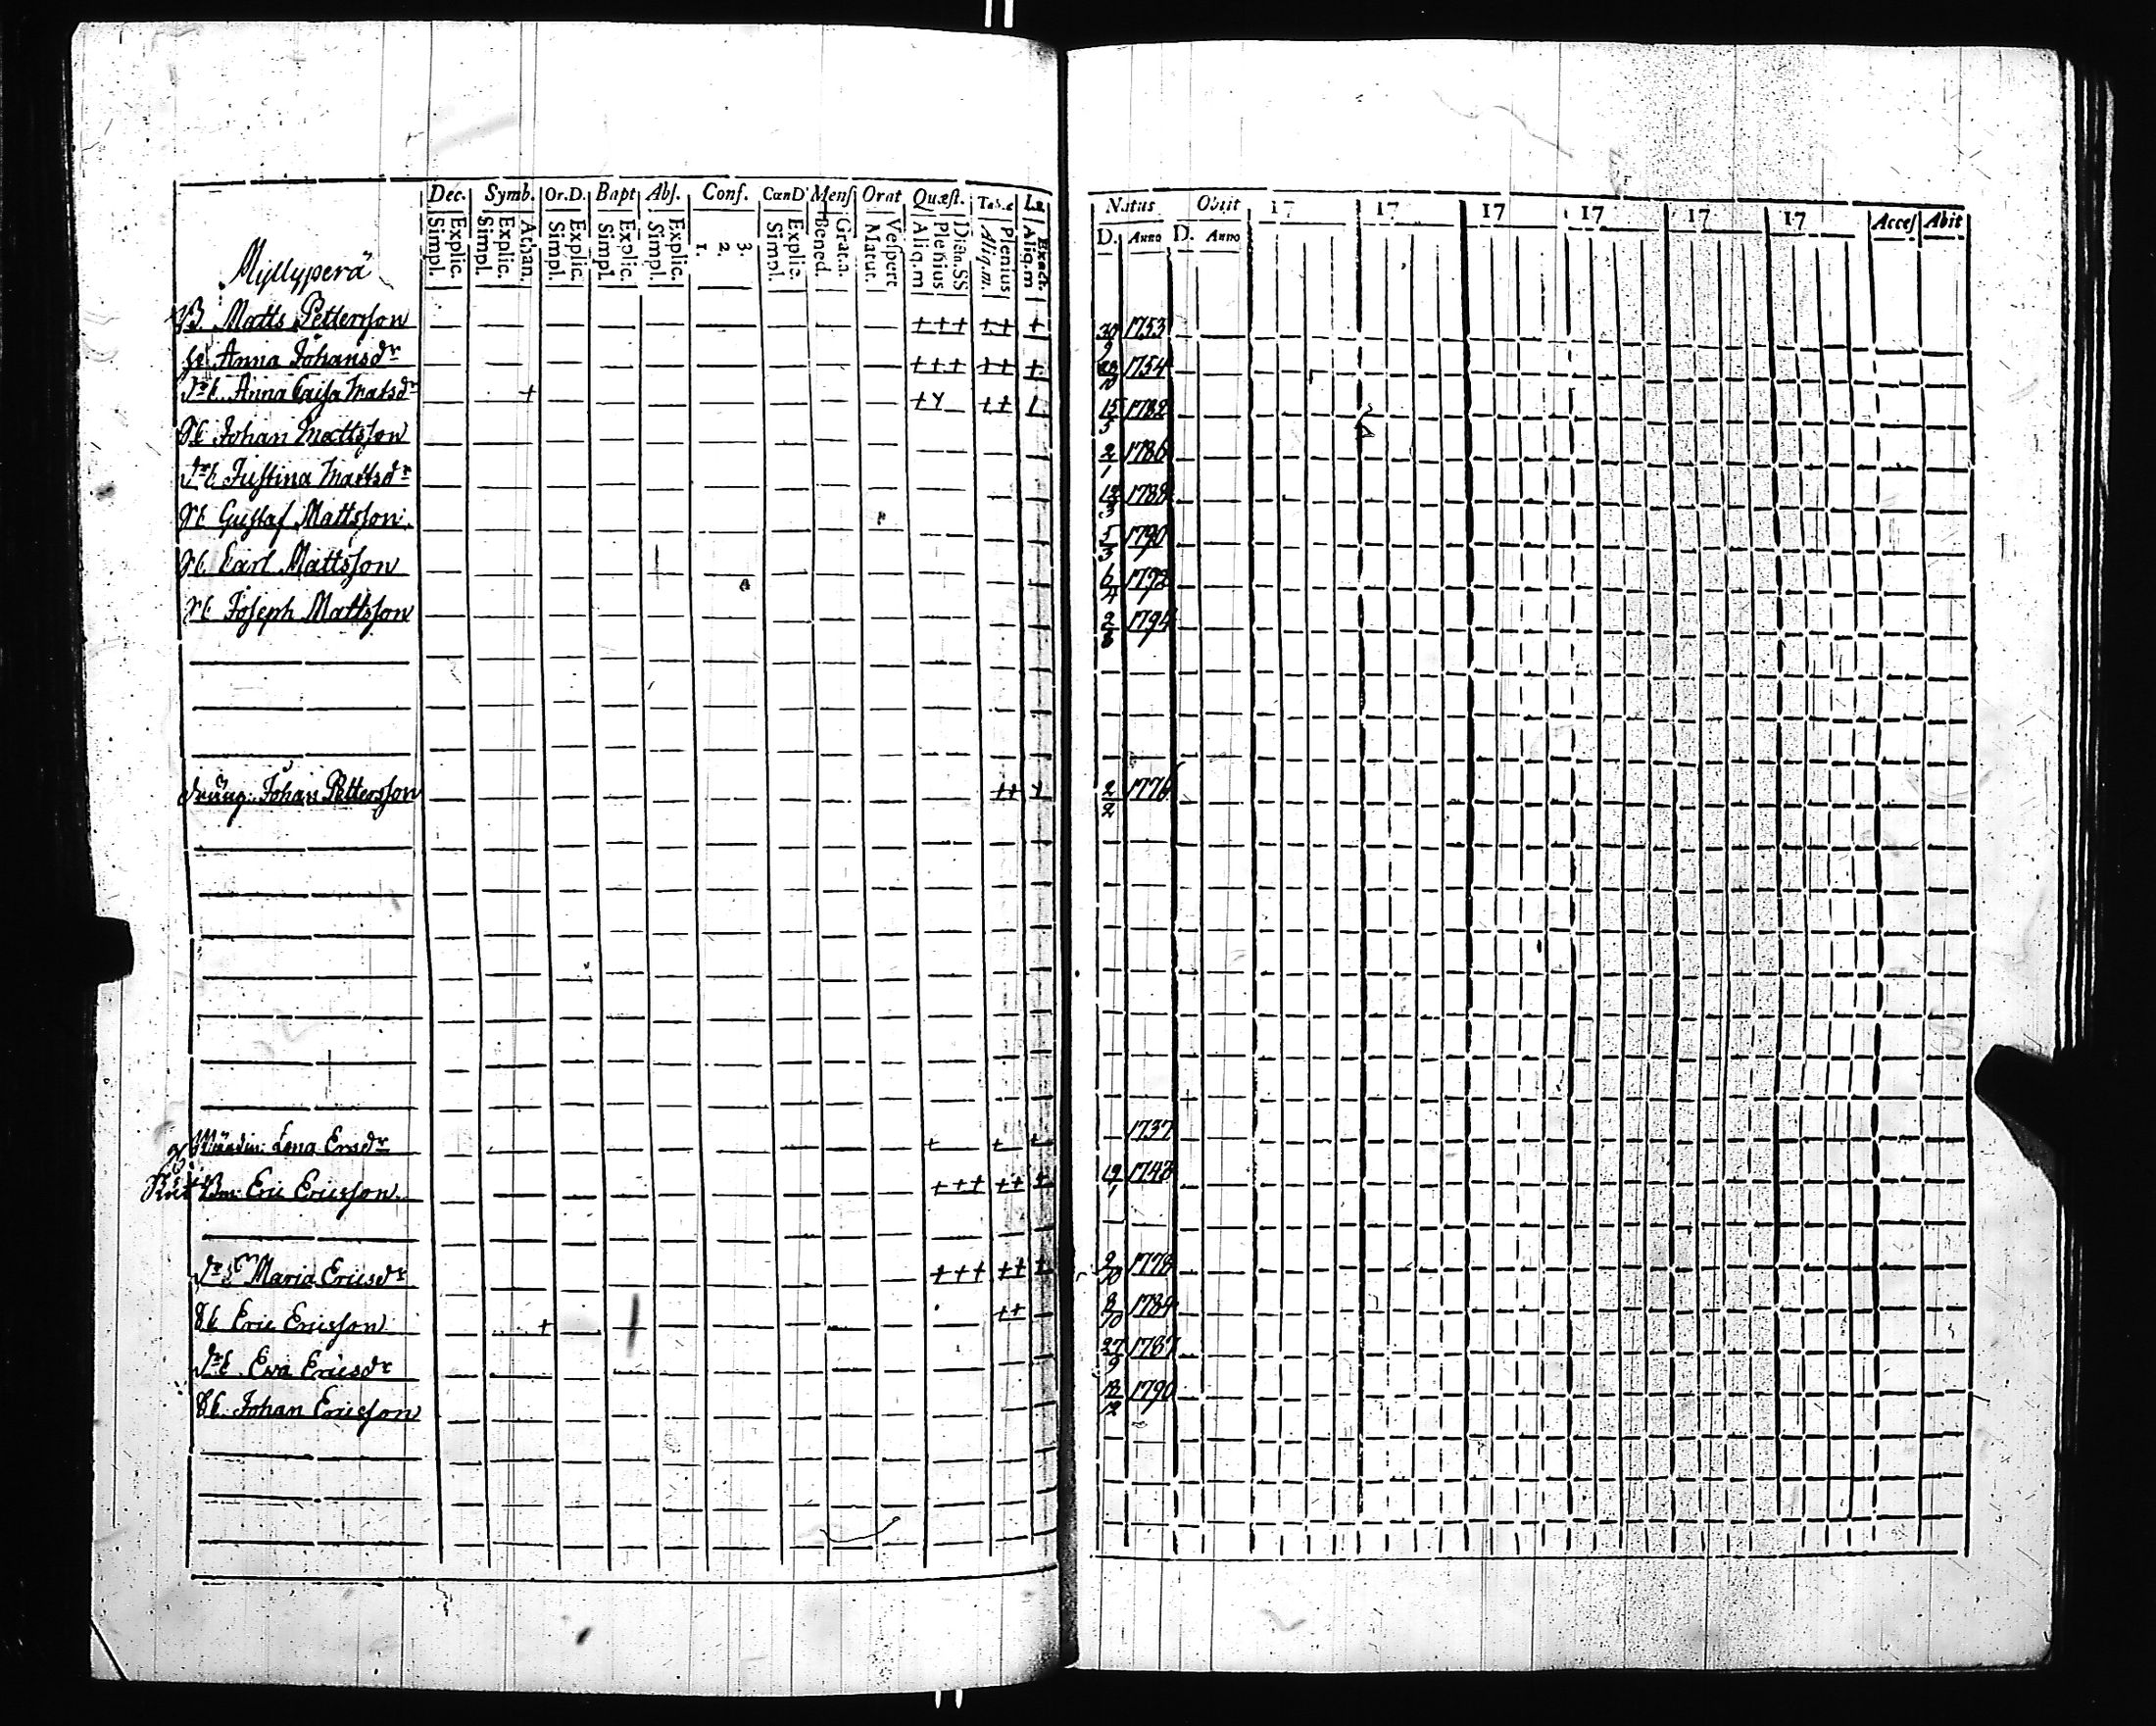 Dec. Symb. Or.D. Bapt Abs. Conf. CœnD Mens Orat Quæst. L.
Natus Obiit 17 17 17 17 17 17 Acces Abit
Simpl. Explic. Simpl. Explic. Athan. Simpl. Explic. Simpl. Explic. Simpl. Explic. 1. 2. 3. Simpl. Explic. Bened. Grat.a. Matut. Vespert Aliq.m Plenius Aliq.m. Plenius Aliq.m Exact.
D. Anno D. Anno
Myllyperä
B. Matts Pettersson +++ ++ + 30/9 1753
Anna Johansdr +++ ++ + 1754
Anna Caisa Matsdr + ++ 15/5 1782
Johan Mattsson 2/1 1786
Justina Mattsdr 1788
Gustaf Mattsson 5/3 1790
Carl Mattsson 6/4 1792
Joseph Mattsson 1794
Johan Pettersson ++ + 2/2 1776
Lena Ersdr + + + 1737
Eric Ericsson +++ ++ + 1748
Maria Ericsdr +++ ++ + 1778
Eric Ericsson + ++ 8/10 1784
Eva Ericsdr 27/9 1787
Johan Ericsson 1790